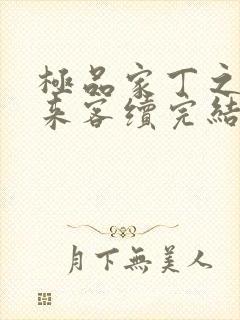 極品家丁之
来客續完結
月下無美人